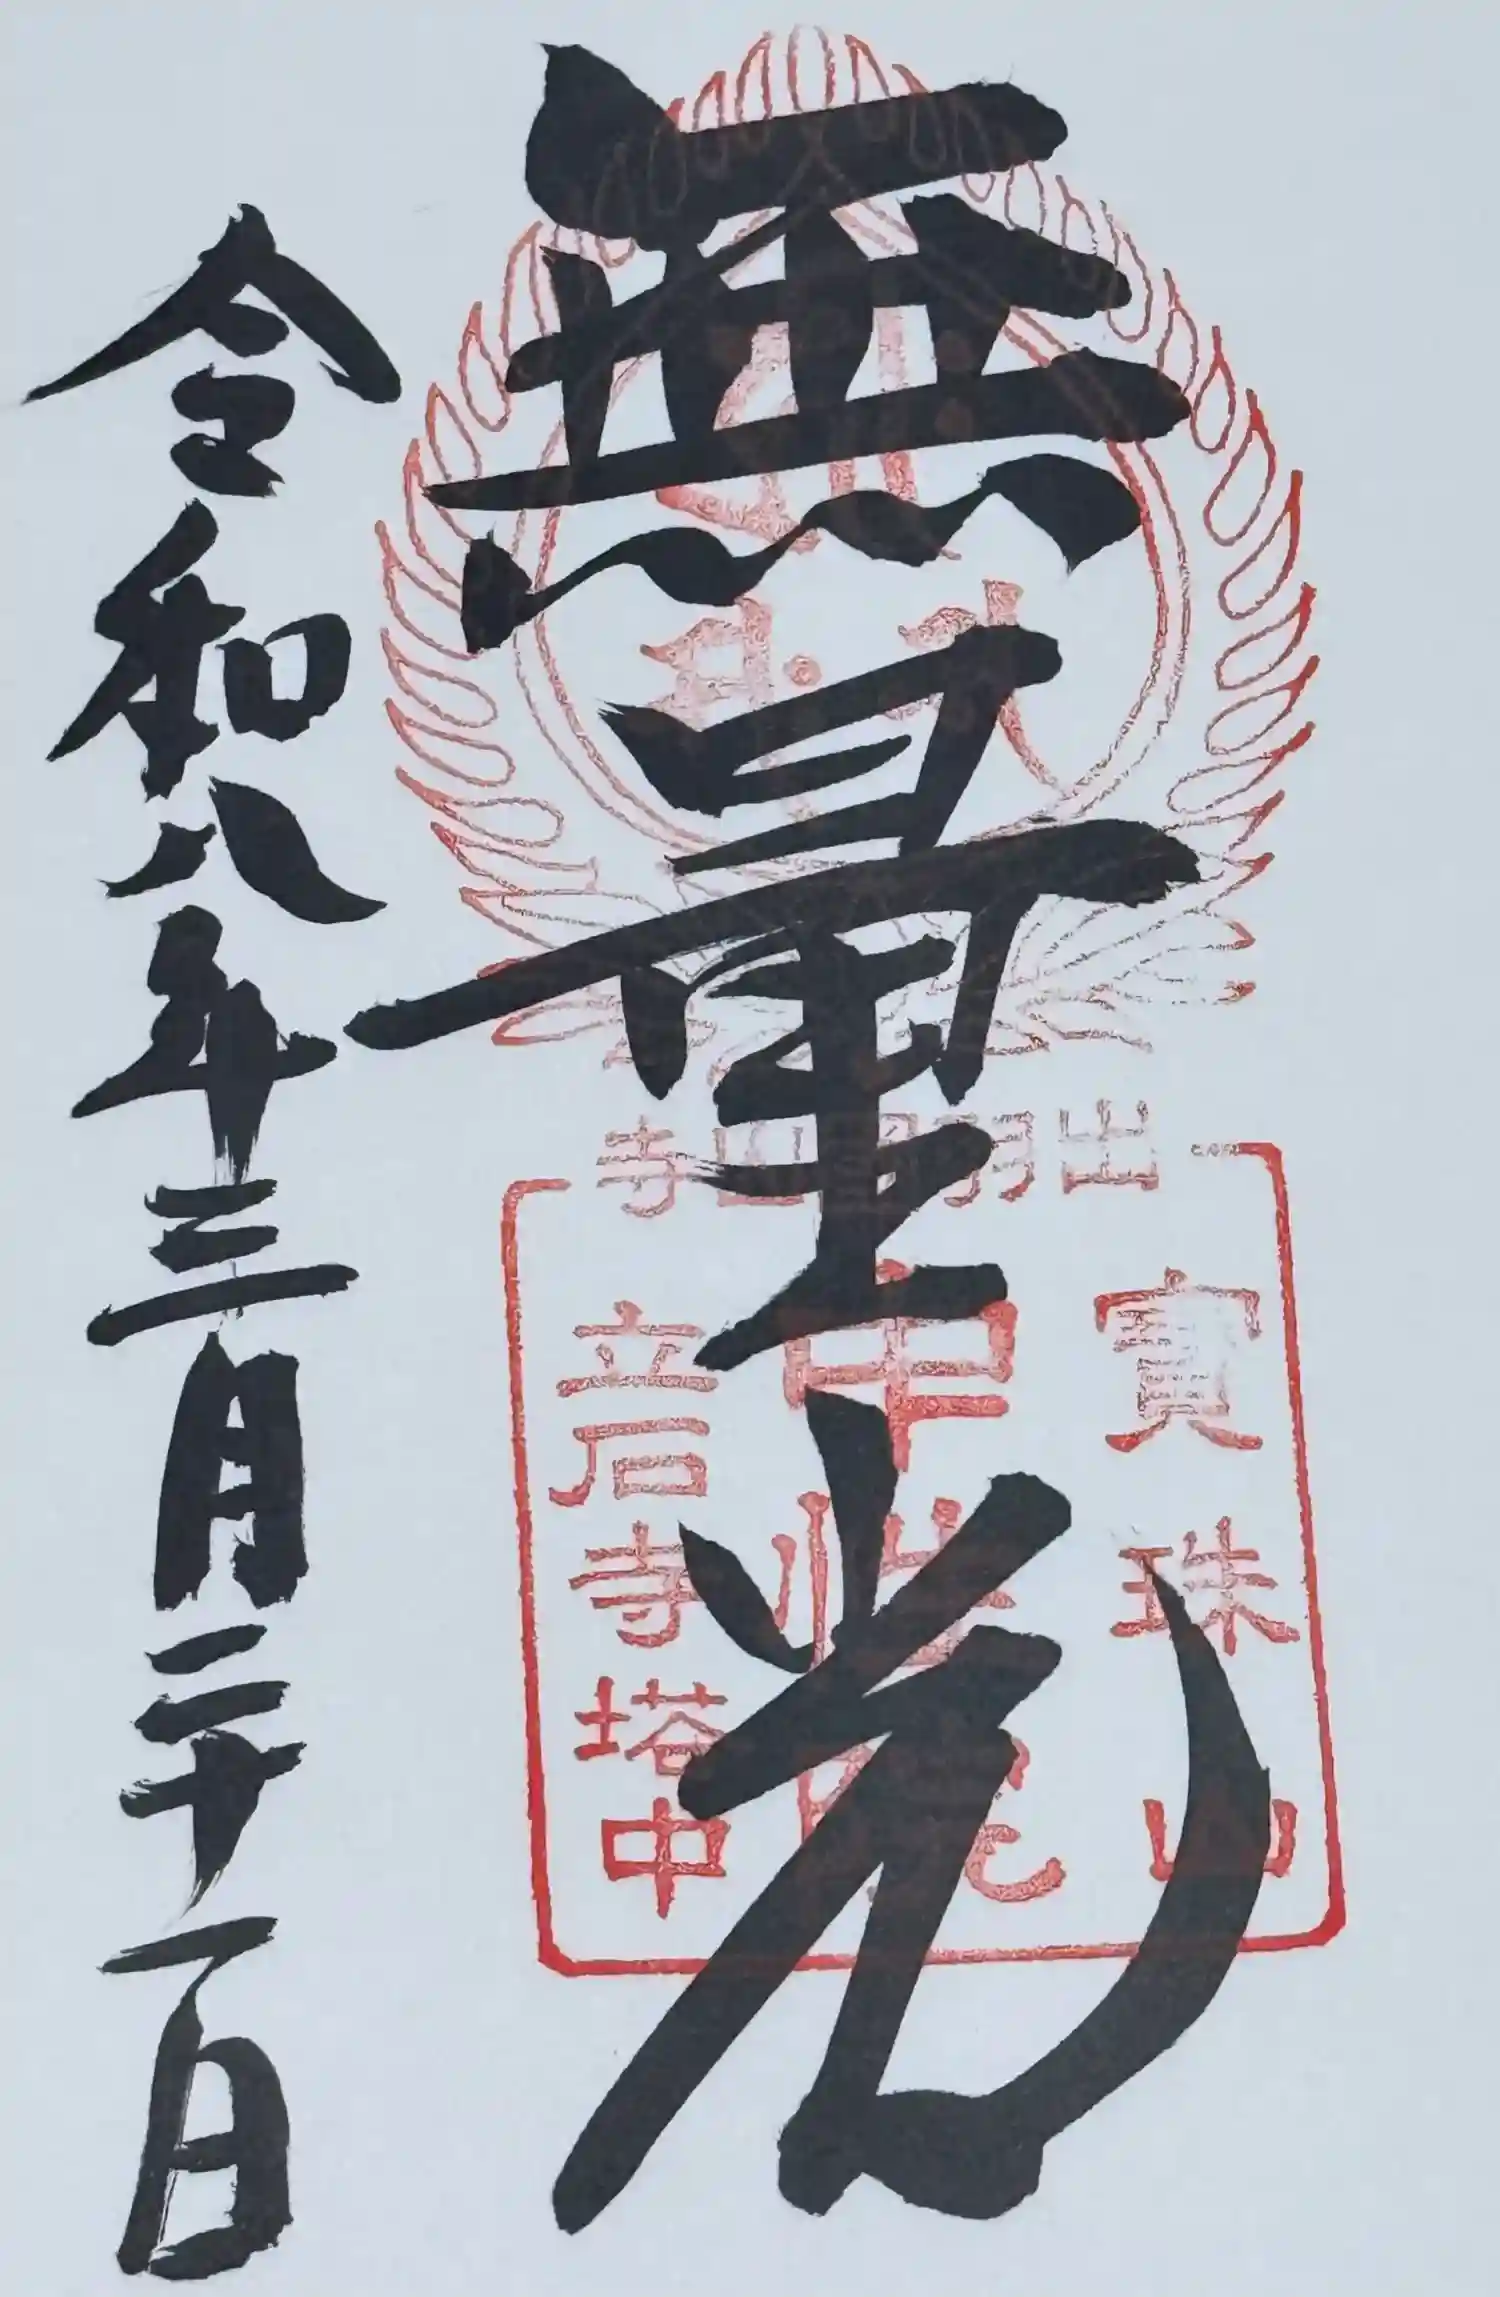 出羽國山寺
寶珠山
無量光
中性院
立石寺塔中
令和八年三月二十一日